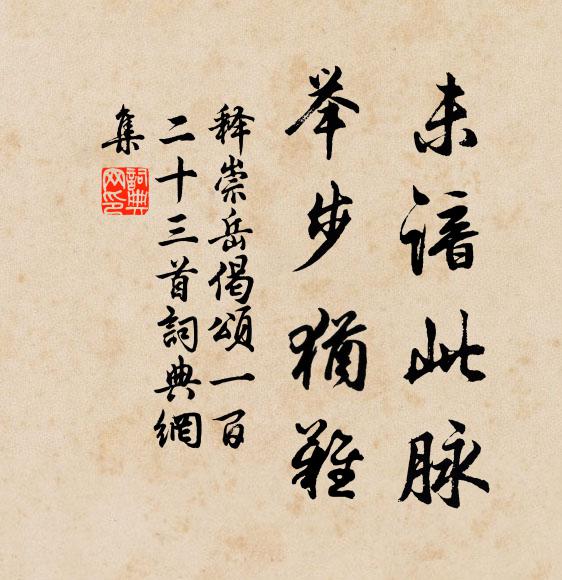 未谙此脉
举步犹难
释崇岳偈颂一百
二十三首詞典網
集
詞典網印